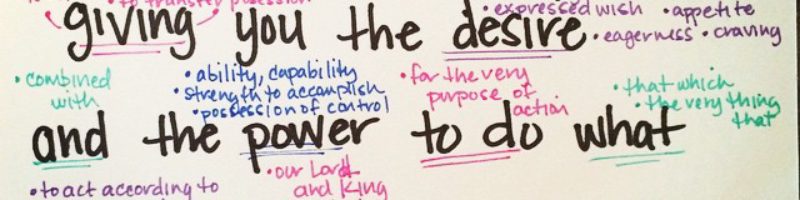 to transfer possession
• expressed wish • appetite
giving you the desire • eagerness • craving
• combined with
• ability, capability
• strength to accomplish
• possession of control
• for the very purpose of action
• that which
• the very thing that
and the power to do what
• to act according to
• our Lord and King